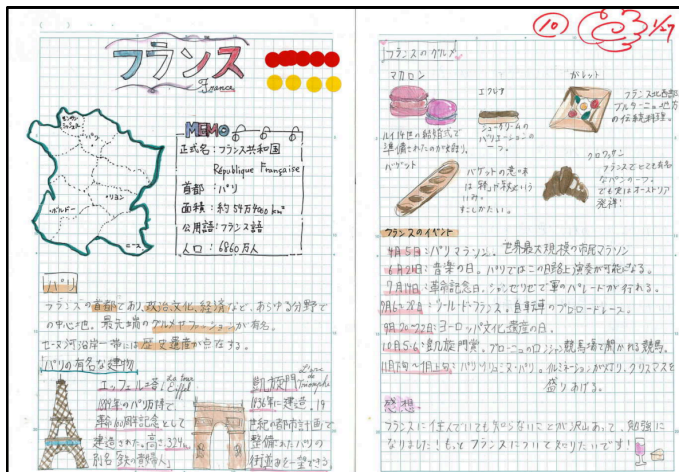 フランス
France
モンサン
ミッシェル
パリ
リヨン
ボルドー
ニース
MEMO
正式名：フランス共和国
République Française
首都：パリ
面積：約54万4000km²
公用語：フランス語
人口：6860万人
パリ
フランスの首都であり、政治、文化、経済など、あらゆる分野で
の中心地。最先端のグルメやファッションが有名。
セーヌ河沿岸一帯には歴史遺産が点在する。
「パリの有名な建物
エッフェル塔
La tour
Eiffel
1889年のパリ万博で
革命100周年記念として
建造された。高さ324m
別名「鉄の貴婦人」
凱旋門
L'arc
de
Triomphe
1836年に建造。19
世紀の都市計画で
整備されたパリの
街並みを一望できる。
10
1/27
フランスのグルメ
マカロン
ルイ14世の結婚式で
準備されたのが始まり。
エクレア
シュークリームの
バリエーションの
一つ。
ガレット
フランス北西部
ブルターニュ地方
の伝統料理。
バゲット
バゲットの意味
は「杖」や「棒」という
いみ。
すこしかたい。
クロワッサン
フランスでとても有名
なパンの一つ。
でも実はオーストリア
発祥！
フランスのイベント
4月5日：パリマラソン。世界最大規模の市民マラソン
6月21日：音楽の日。パリではこの日路上演奏が可能になる。
7月14日：革命記念日。シャンゼリゼで軍のパレードが行われる。
ツール・ド・フランス。自転車のプロロードレース。
ヨーロッパ文化遺産の日。
10月5・6：凱旋門賞。ブローニュのロンシャン競馬場で開かれる競馬。
イルミネーションがメイン。クリスマスを
盛りあげる。
感想。
フランスに住んでいても知らないことが沢山あって、勉強に
なりました！もっとフランスについて知りたいです！